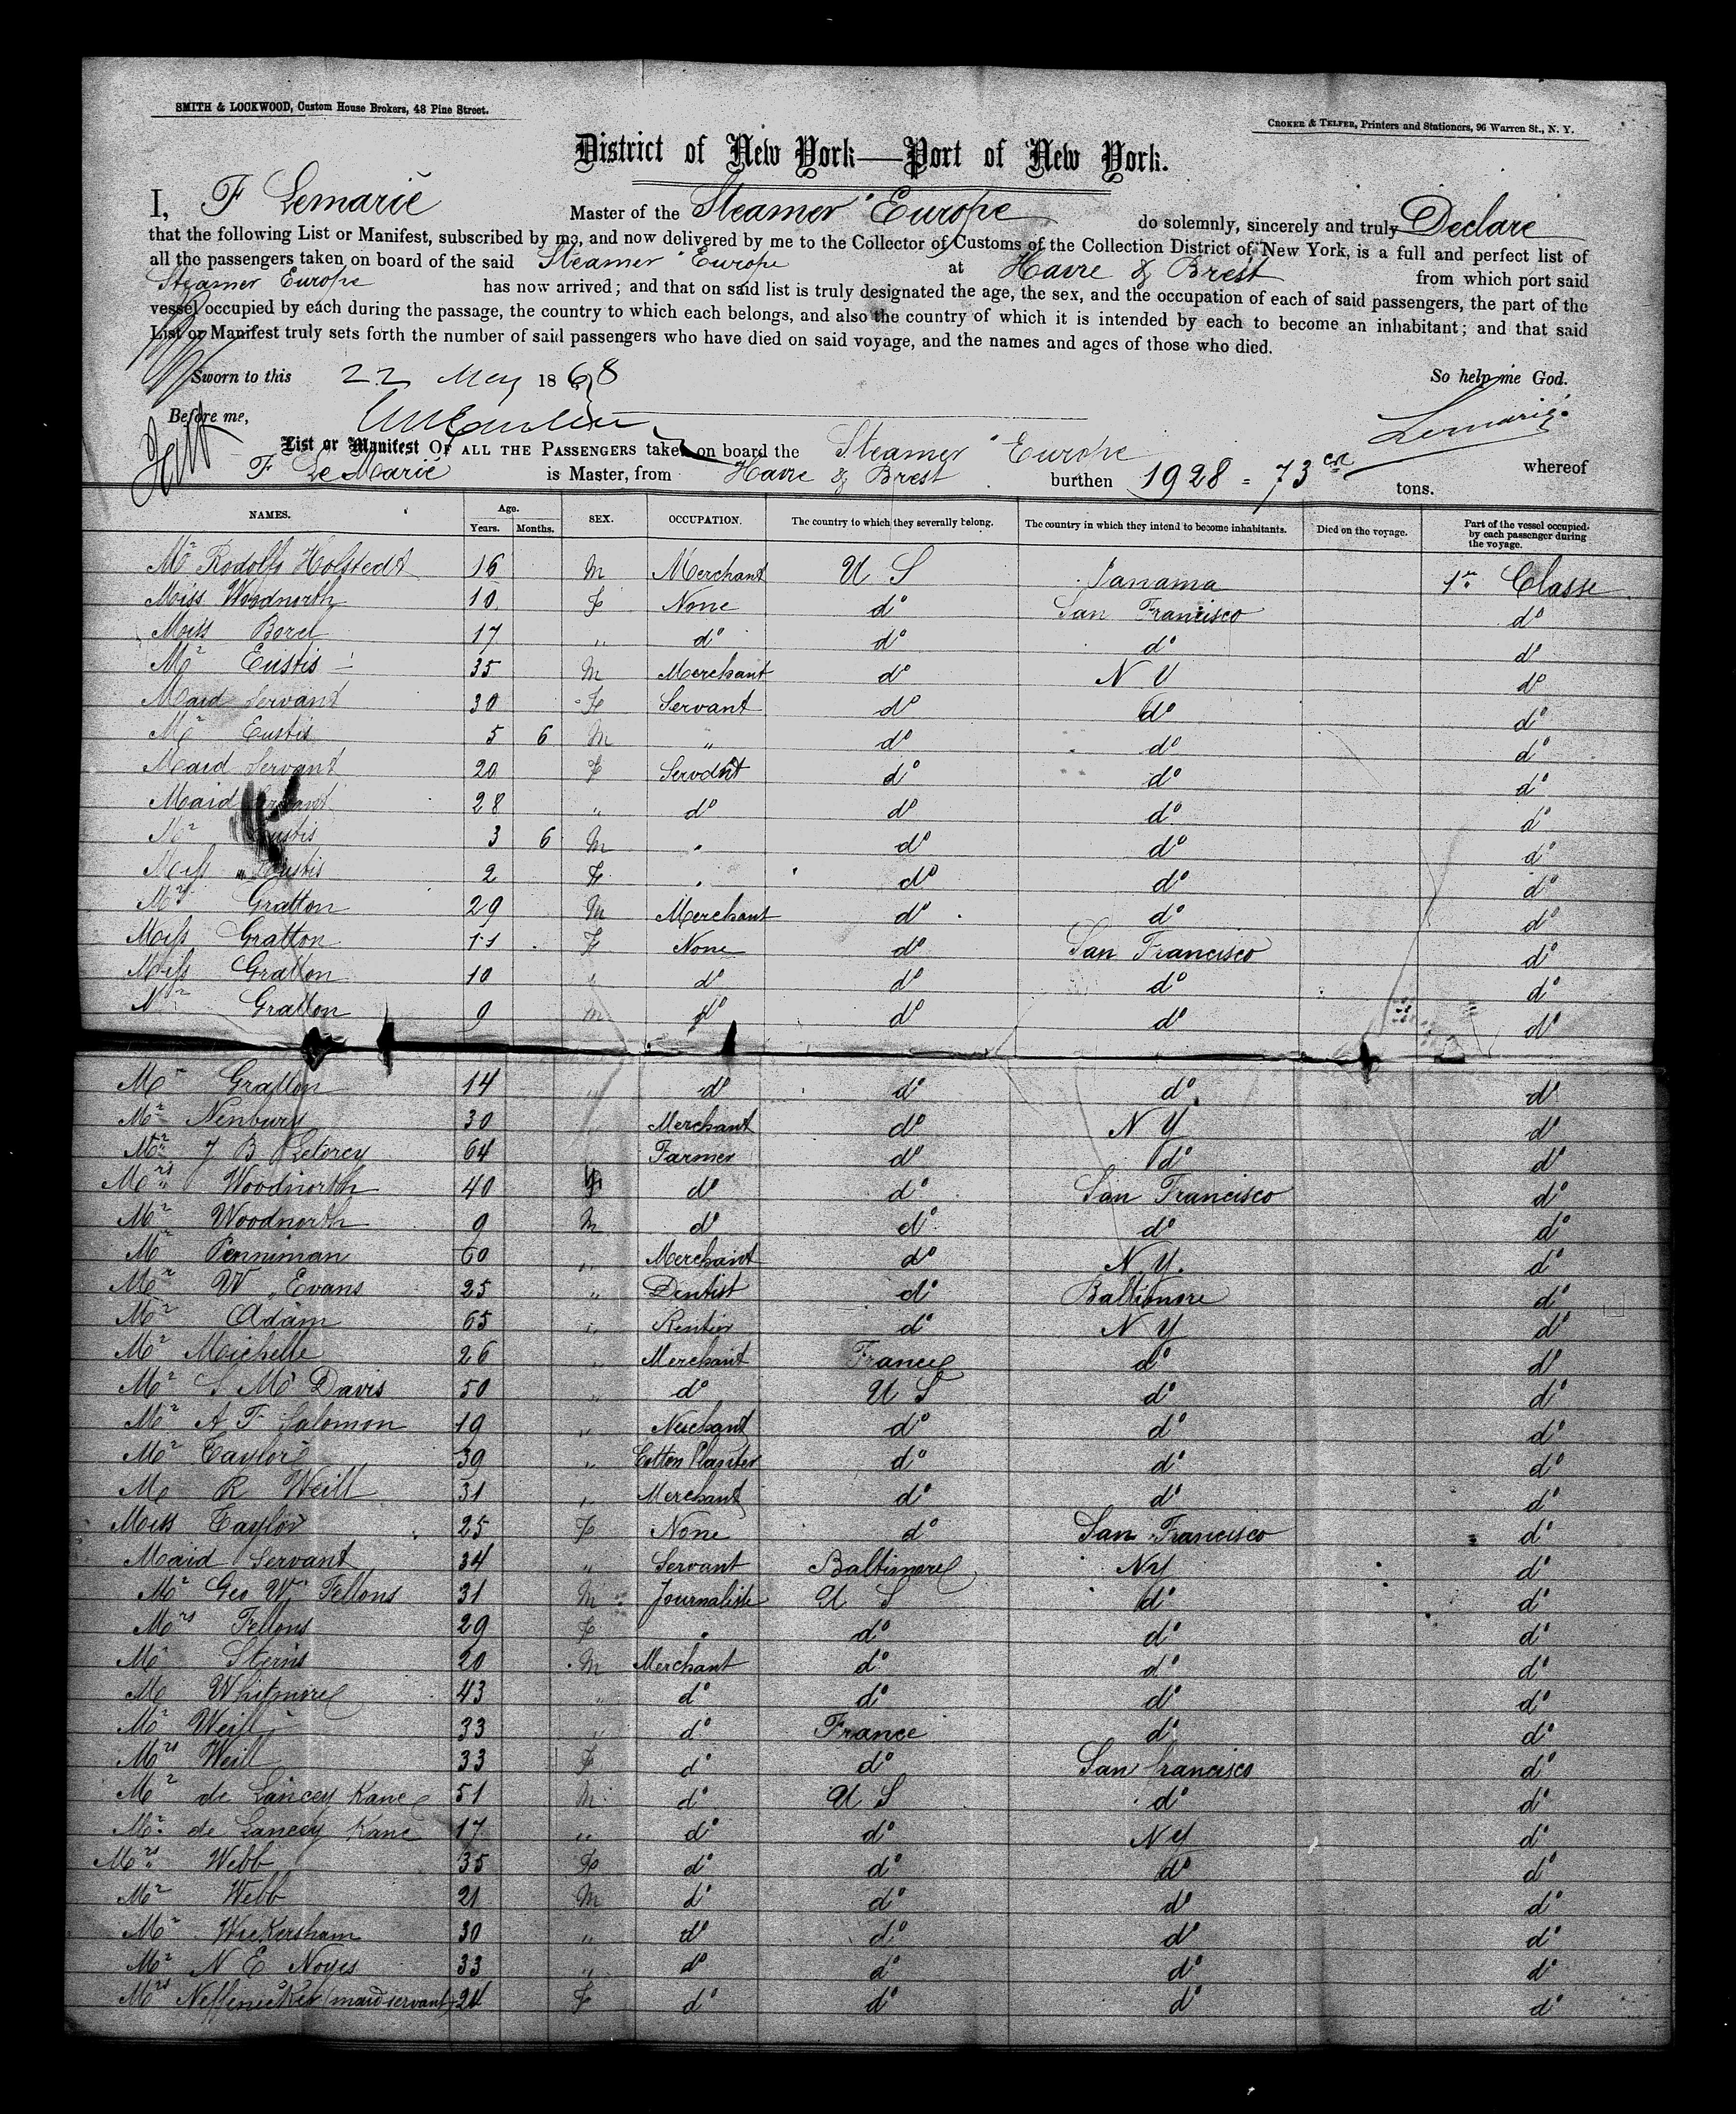 SMITH & LOCKWOOD, Custom House Brokers, 48 Pine Street.
CROKER & TELFER, Printers and Stationers, 96 Warren St., N. Y.
District of New York—Port of New York.
I, F Lemarié Master of the Steamer "Europe do solemnly, sincerely and truly Declare
that the following List or Manifest, subscribed by me, and now delivered by me to the Collector of Customs of the Collection District of New York, is a full and perfect list of
all the passengers taken on board of the said Steamer "Europe at Havre & Brest from which port said
Steamer Europe has now arrived; and that on said list is truly designated the age, the sex, and the occupation of each of said passengers, the part of the
vessel occupied by each during the passage, the country to which each belongs, and also the country of which it is intended by each to become an inhabitant; and that said
List or Manifest truly sets forth the number of said passengers who have died on said voyage, and the names and ages of those who died.
Sworn to this 22 May 1868 So help me God.
Before me, Lemarié
List or Manifest OF ALL THE PASSENGERS taken on board the Steamer "Europe whereof
F LeMarié is Master, from Havre & Brest burthen 1928 = 73 tons.
NAMES. Age. Years. Months. SEX. OCCUPATION. The country to which they severally belong. The country in which they intend to become inhabitants. Died on the voyage. Part of the vessel occupied by each passenger during the voyage.
Mr Rodolfo Holstedt 16 M Merchant U S Panama 1re Classe
Miss Woodnorth 10 F None do San Francisco do
Miss Borel 17 " do do do do
Mr Eustis 35 M Merchant do N Y do
Maid Servant 30 F Servant do do do
Mr Eustis 5 6 M " do do do
Maid Servant 20 F Servant do do do
Maid Servant 28 " do do do do
Mr Eustis 3 6 M " do do do
Miss Eustis 2 F " do do do
Mr Gratton 29 M Merchant do do do
Miss Gratton 11 F None do San Francisco do
Miss Gratton 10 " do do do do
Mr Gratton 9 M do do do do
Mr Gratton 14 " do do do do
Mr Nenbury 30 Merchant do N Y do
Mr J B Letorey 64 Farmer do do do
Mrs Woodnorth 40 F do do San Francisco do
Mr Woodnorth 9 M do do do do
Mr Penniman 60 " Merchant do N.Y. do
Mr W Evans 25 " Dentist do Baltimore do
Mr Adam 65 " Rentier do N Y do
Mr Michelle 26 " Merchant France do do
Mr S M Davis 50 " do U S do do
Mr A F Salomon 19 " Merchant do do do
Mr Taylor 39 " Cotton Planter do do do
M R Weill 31 " Merchant do do do
Miss Taylor 25 F None do San Francisco do
Maid Servant 34 " Servant Baltimore NY do
Mr Geo W Fellons 31 M Journaliste U S do do
Mrs Fellons 29 F " do do do
Mr Sterns 20 M Merchant do do do
M Whitmore 43 " do do do do
Mr Weill 33 " do France do do
Mrs Weill 33 F do do San francisco do
Mr de Lancey Kane 51 M do U S do do
Mr de Lancey Kane 17 " do do NY do
Mrs Webb 35 F do do do do
Mr Webb 21 M do do do do
Mr Wickersham 30 " do do do do
Mr N E Noyes 33 " do do do do
Mrs (maid servant) 24 F do do do do